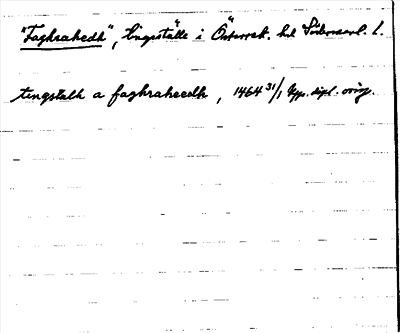 "Faghrahedh", tingställe i Österrek. hd Södermanl. l.
tingstadh a faghraheedh, 1464 31/1 Ppp. dipl. orig.